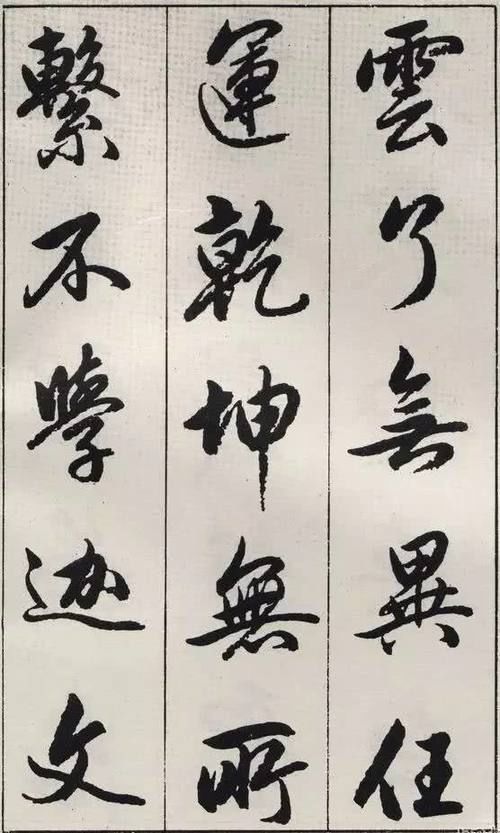 雲了無異任
運乾坤無所
繫不學迦文